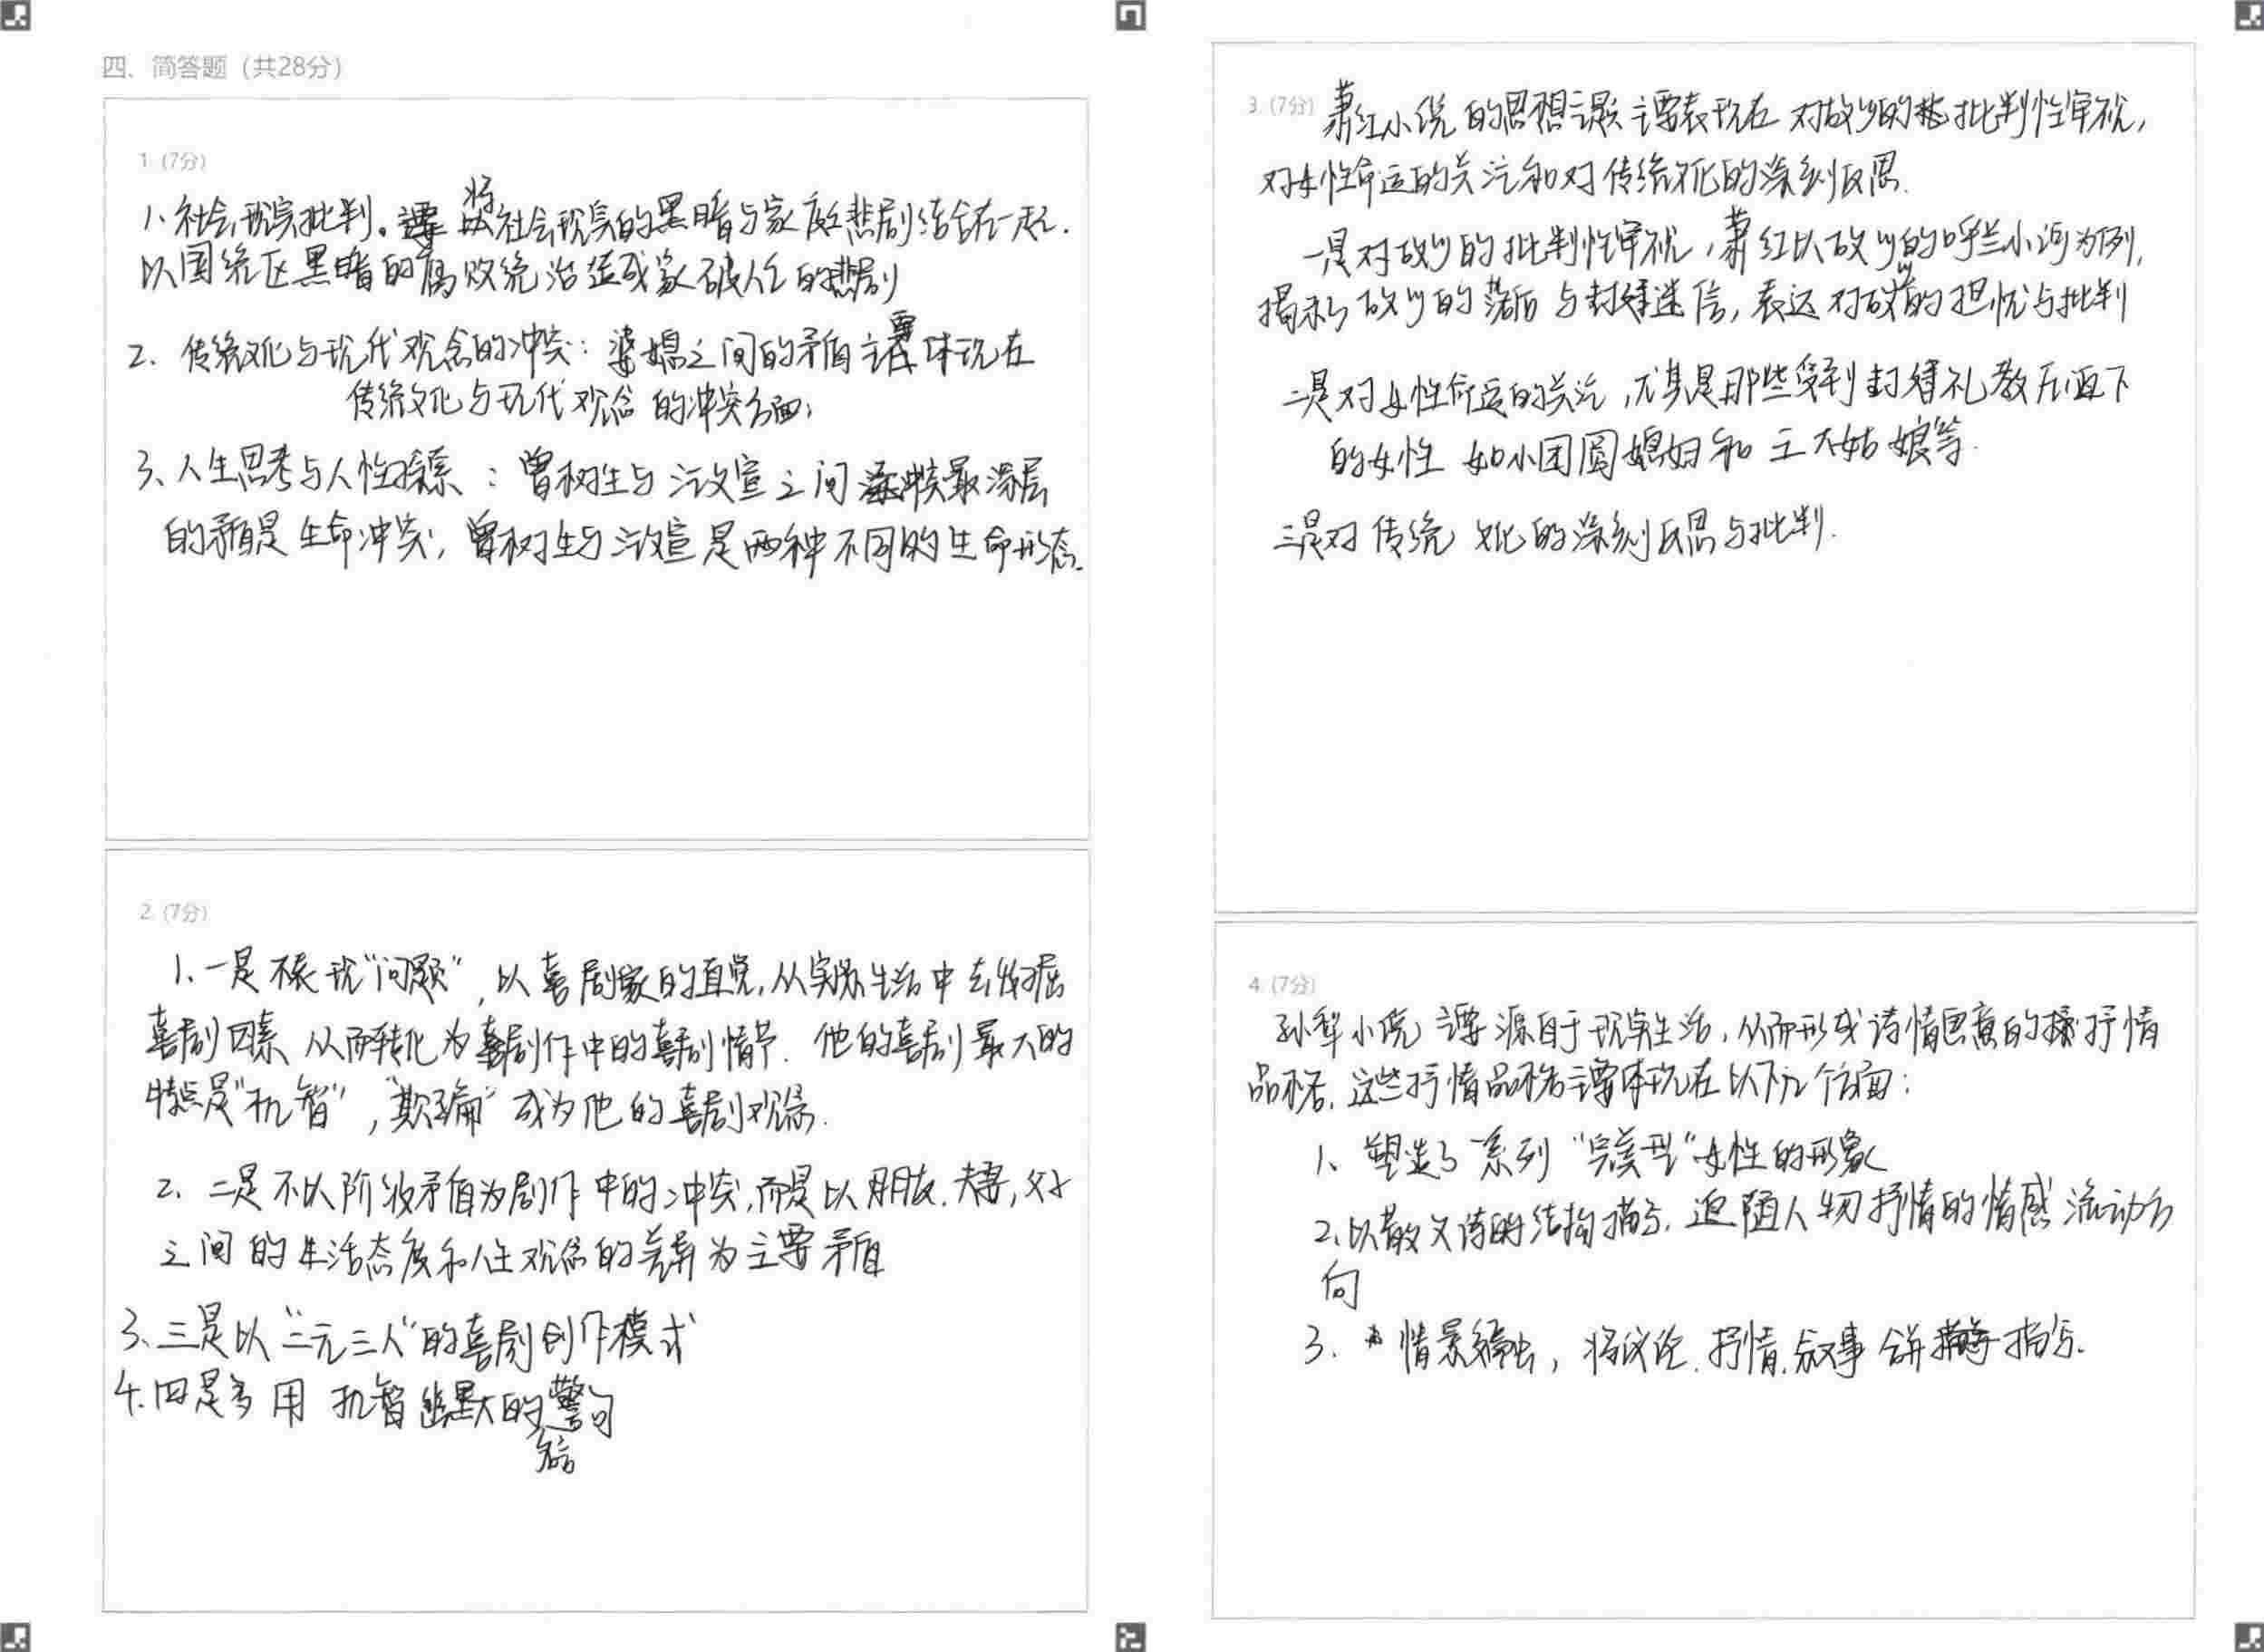 四、简答题（共28分）
1. (7分)
1、社会现实批判。将社会现实的黑暗与家庭悲剧结合在一起.
以国统区黑暗的腐败统治造成家破人亡的悲剧
2、传统文化与现代观念的冲突：婆媳之间的矛盾主要体现在
传统文化与现代观念的冲突方面；
3、人生思考与人性探索：曾树生与汪文宣之间最深层
的矛盾是生命冲突，曾树生与汪文宣是两种不同的生命形态.
2. (7分)
1、一是不表现“问题”，以喜剧家的直觉，从实际生活中去发掘
喜剧因素、从而转化为喜剧作中的喜剧情节. 他的喜剧最大的
特点是“机智”，“欺骗”成为他的喜剧观念.
2、二是不以阶级矛盾为剧作中的冲突，而是以朋友、夫妻，父子
之间的生活态度和人生观念的差异为主要矛盾
3、三是以“二元三人”的喜剧创作模式
4、四是多用机智幽默的警句
3. (7分) 萧红小说的思想主题主要表现在对故乡的批判性审视，
对女性命运的关注和对传统文化的深刻反思.
一是对故乡的批判性审视，萧红以故乡的呼兰小河为例，
揭示了故乡的落后与封建迷信，表达对故乡的担忧与批判
二是对女性命运的关注，尤其是那些受到封建礼教压迫下
的女性 如小团圆媳妇和王大姑娘等.
三是对传统文化的深刻反思与批判.
4. (7分)
孙犁小说主要源自于现实生活，从而形成诗情画意的抒情
品格，这些抒情品格主要体现在以下几个方面：
1、塑造了一系列“完美型”女性的形象
2、以散文诗的结构描写，追随人物抒情的情感流动方
向
3、情景交融，将议论、抒情、叙事合并描写.